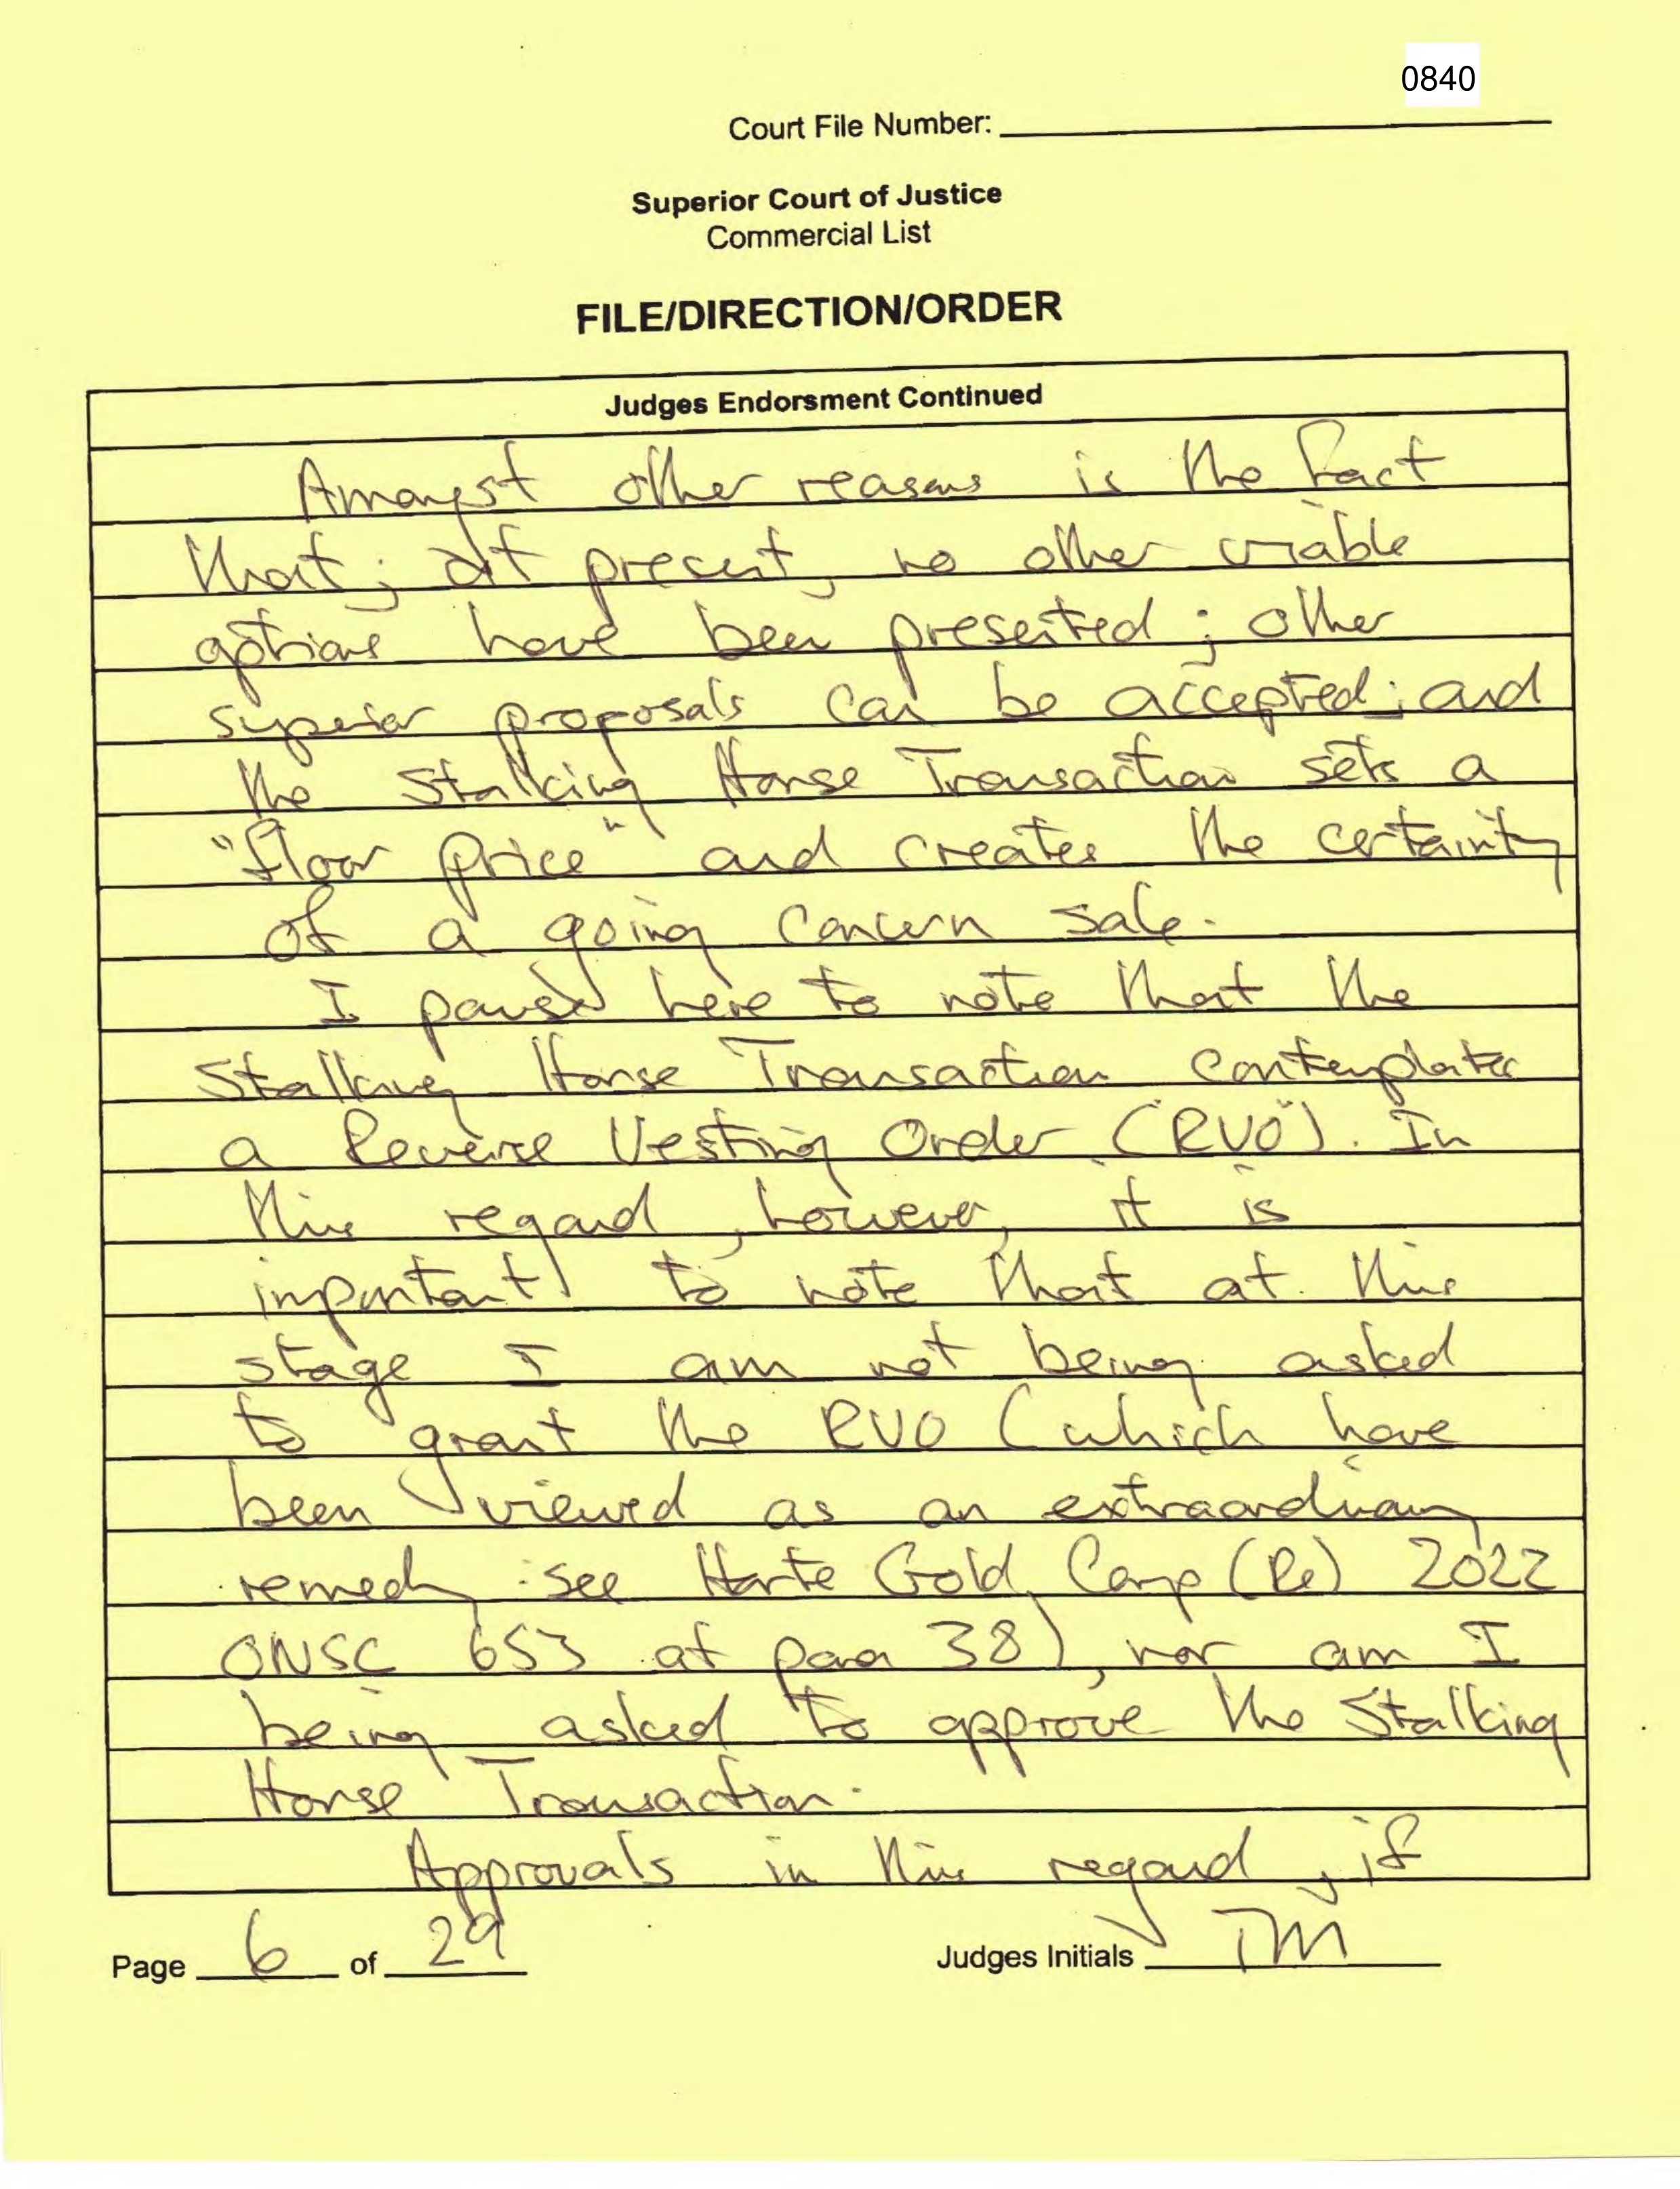 0840
Court File Number:
Superior Court of Justice
Commercial List
FILE/DIRECTION/ORDER
Judges Endorsment Continued
Amongst other reasons is the fact
that; at present, no other viable
options have been presented; other
superior proposals can be accepted; and
the Stalking Horse Transaction sets a
"floor price" and creates the certainty
of a going concern sale.
I pause here to note that the
Stalking Horse Transaction contemplates
a Reverse Vesting Order ("RVO"). In
this regard, however, it is
important to note that at this
stage I am not being asked
to grant the RVO (which have
been viewed as an extraordinary
remedy: see Harte Gold Corp (Re) 2022
ONSC 653 at para 38), nor am I
being asked to approve the Stalking
Horse Transaction.
Approvals in this regard, if
Page 6 of 29
Judges Initials TM